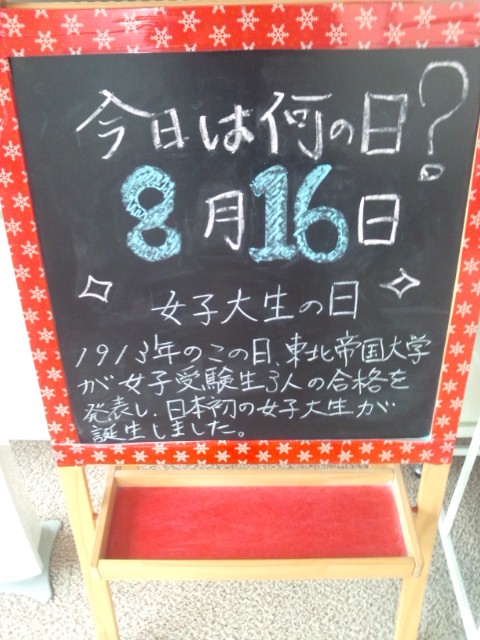 今日は何の日?
8月16日
女子大生の日
1913年のこの日、東北帝国大学
が女子受験生3人の合格を
発表し、日本初の女子大生が
誕生しました。